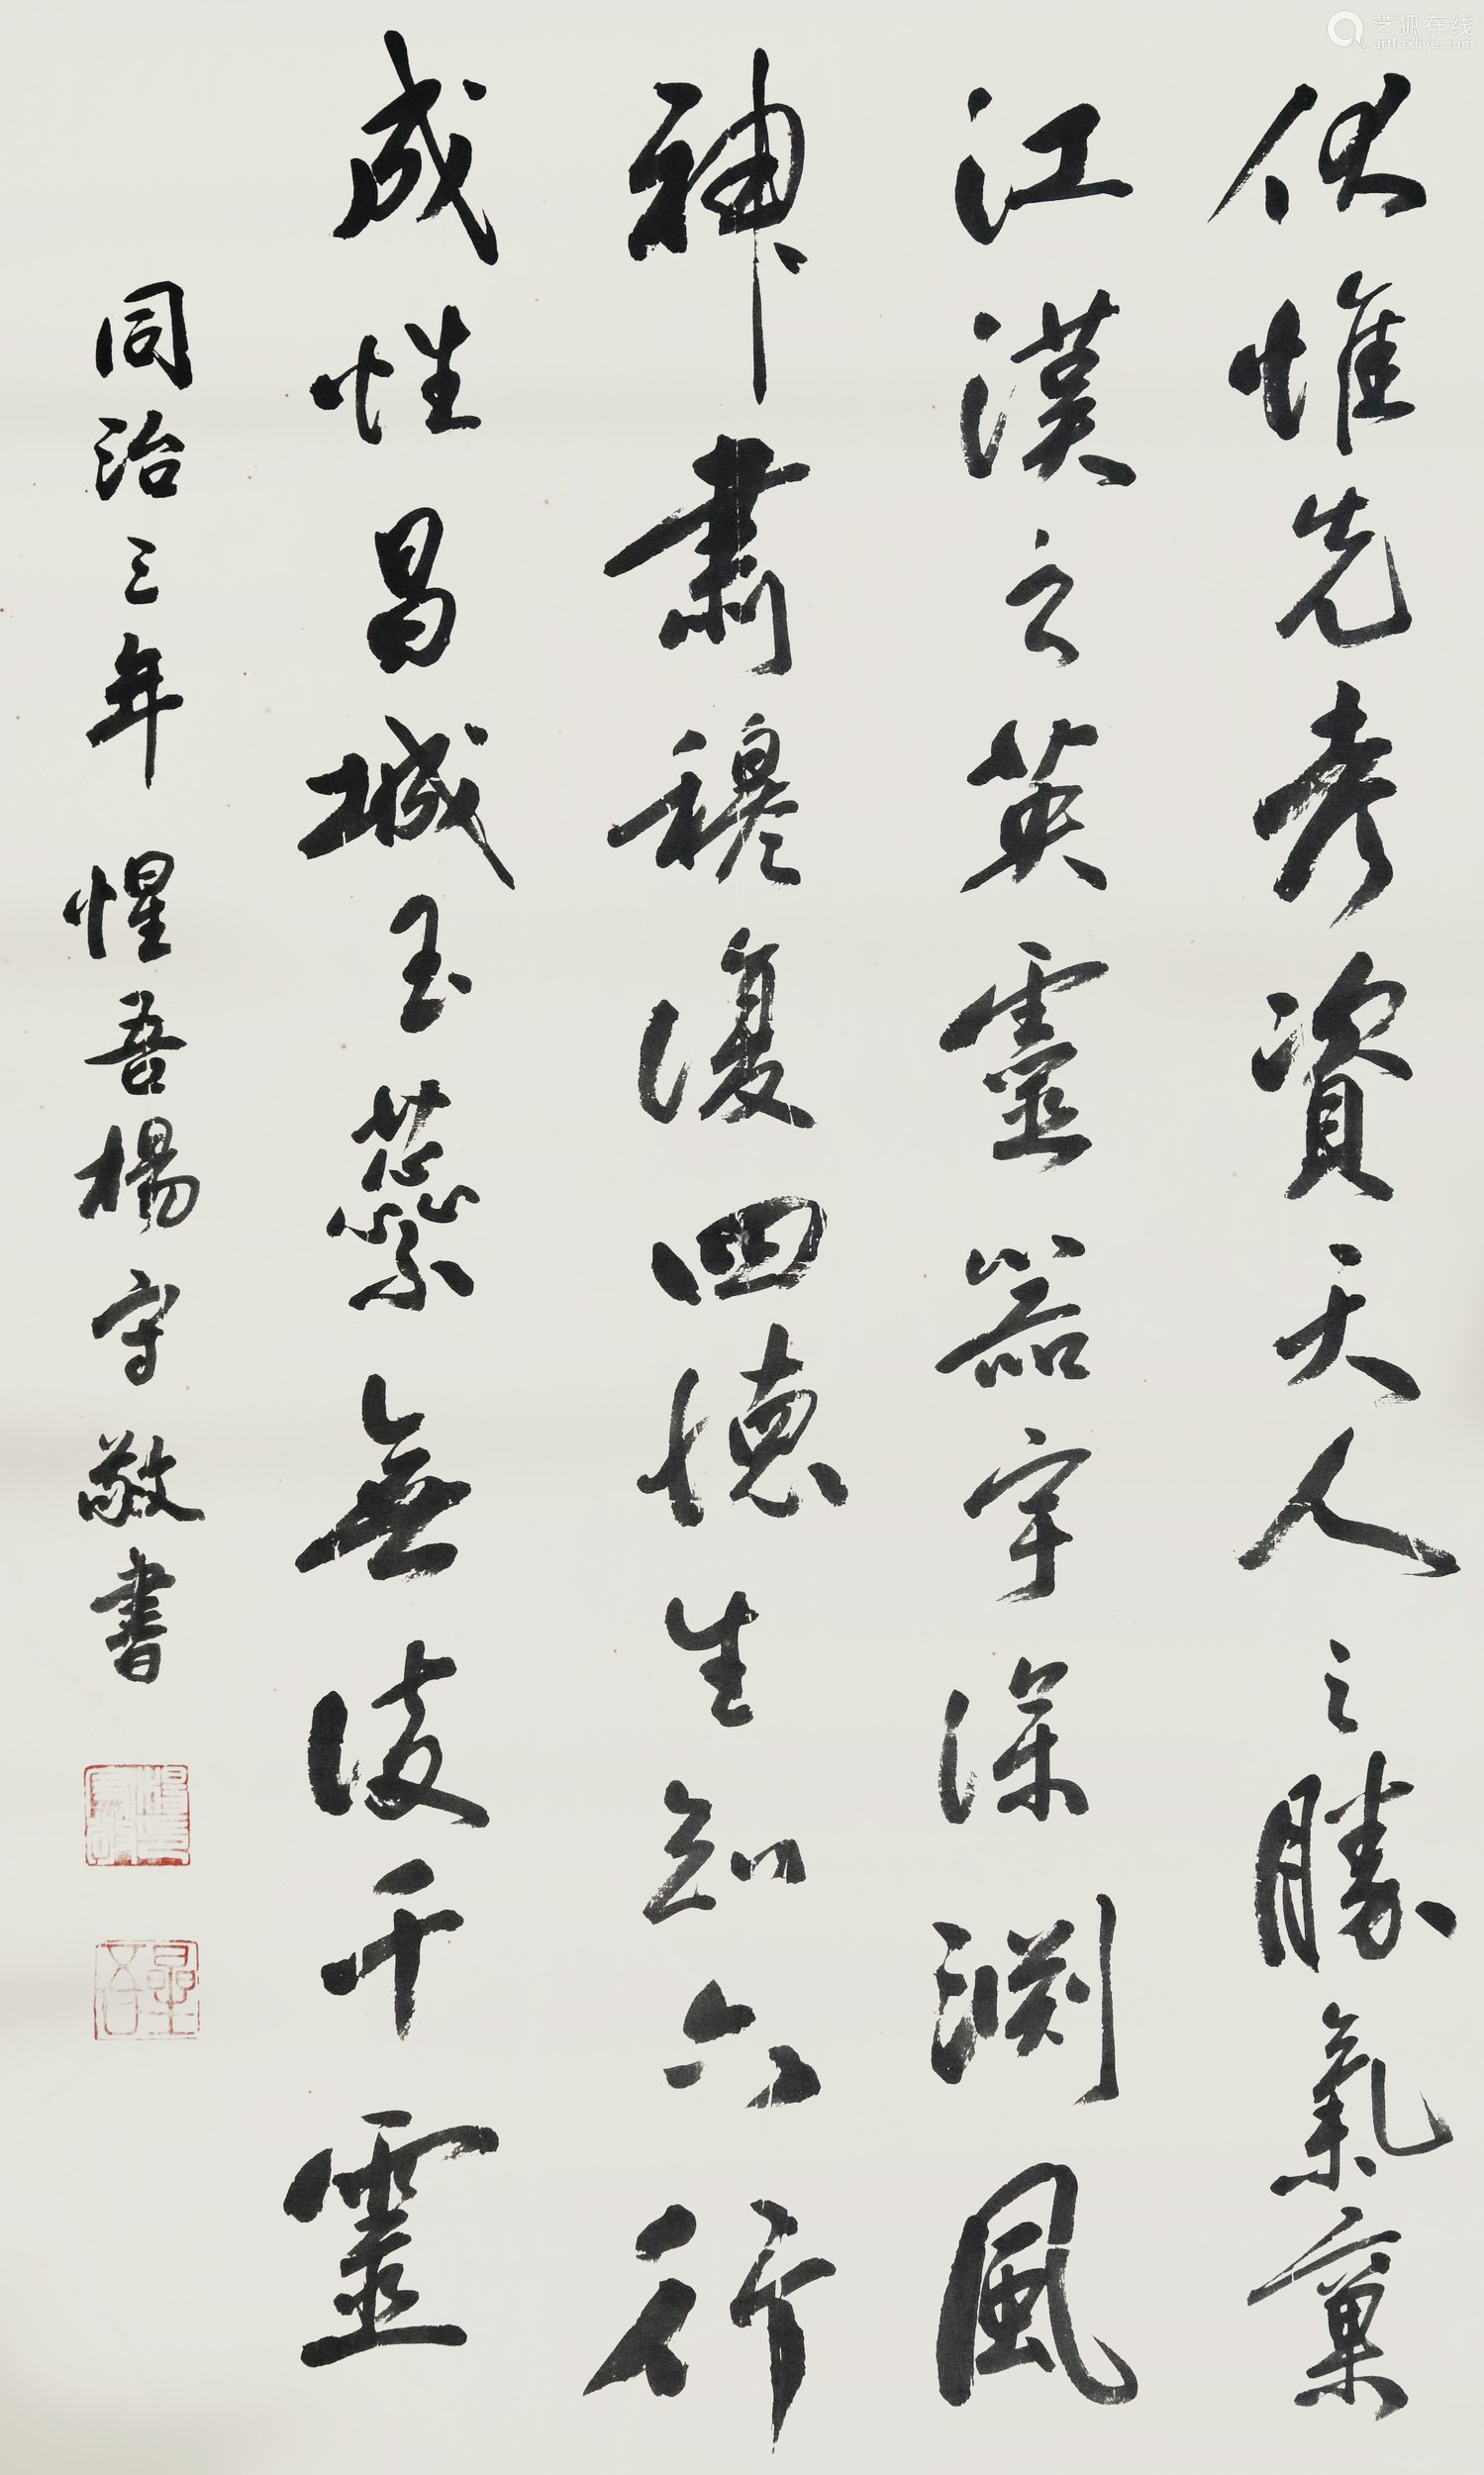 伏惟先考資天人之勝氣稟
江漢之英靈器宇深淵風
神肅穆復四德生知六行
成性昌城玉蘂無凌千靈
同治三年 惺吾楊守敬書
艺狐在线
artfoxlive.com